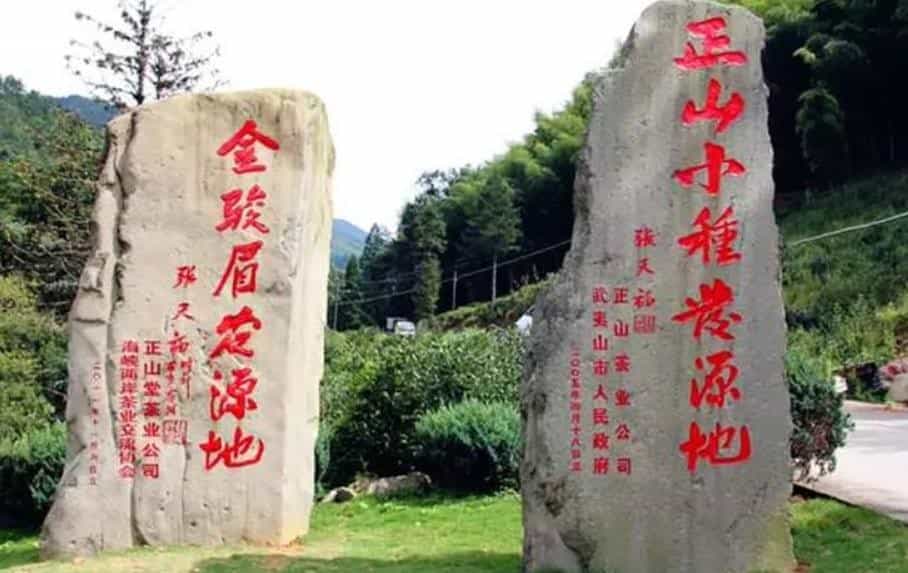 金骏眉发源地
张天福
正山堂茶业公司
海峡两岸茶业交流协会
正山小種發源地
張天福
正山茶业公司
武夷山市人民政府
二〇〇五年四月十八日立